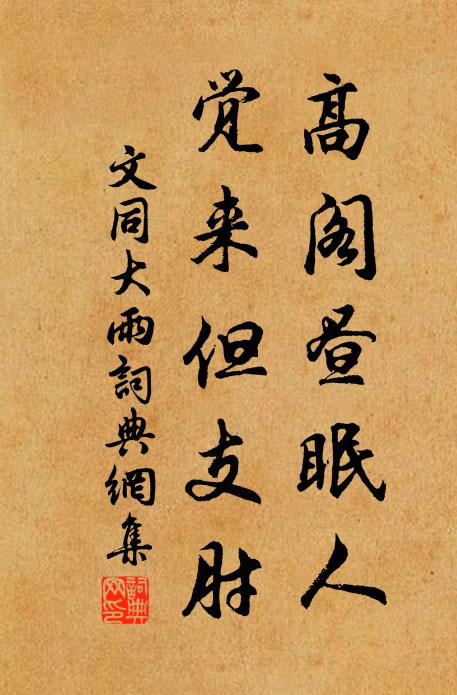 高阁昼眠人
觉来但支肘
文同大雨詞典網集
詞典网印